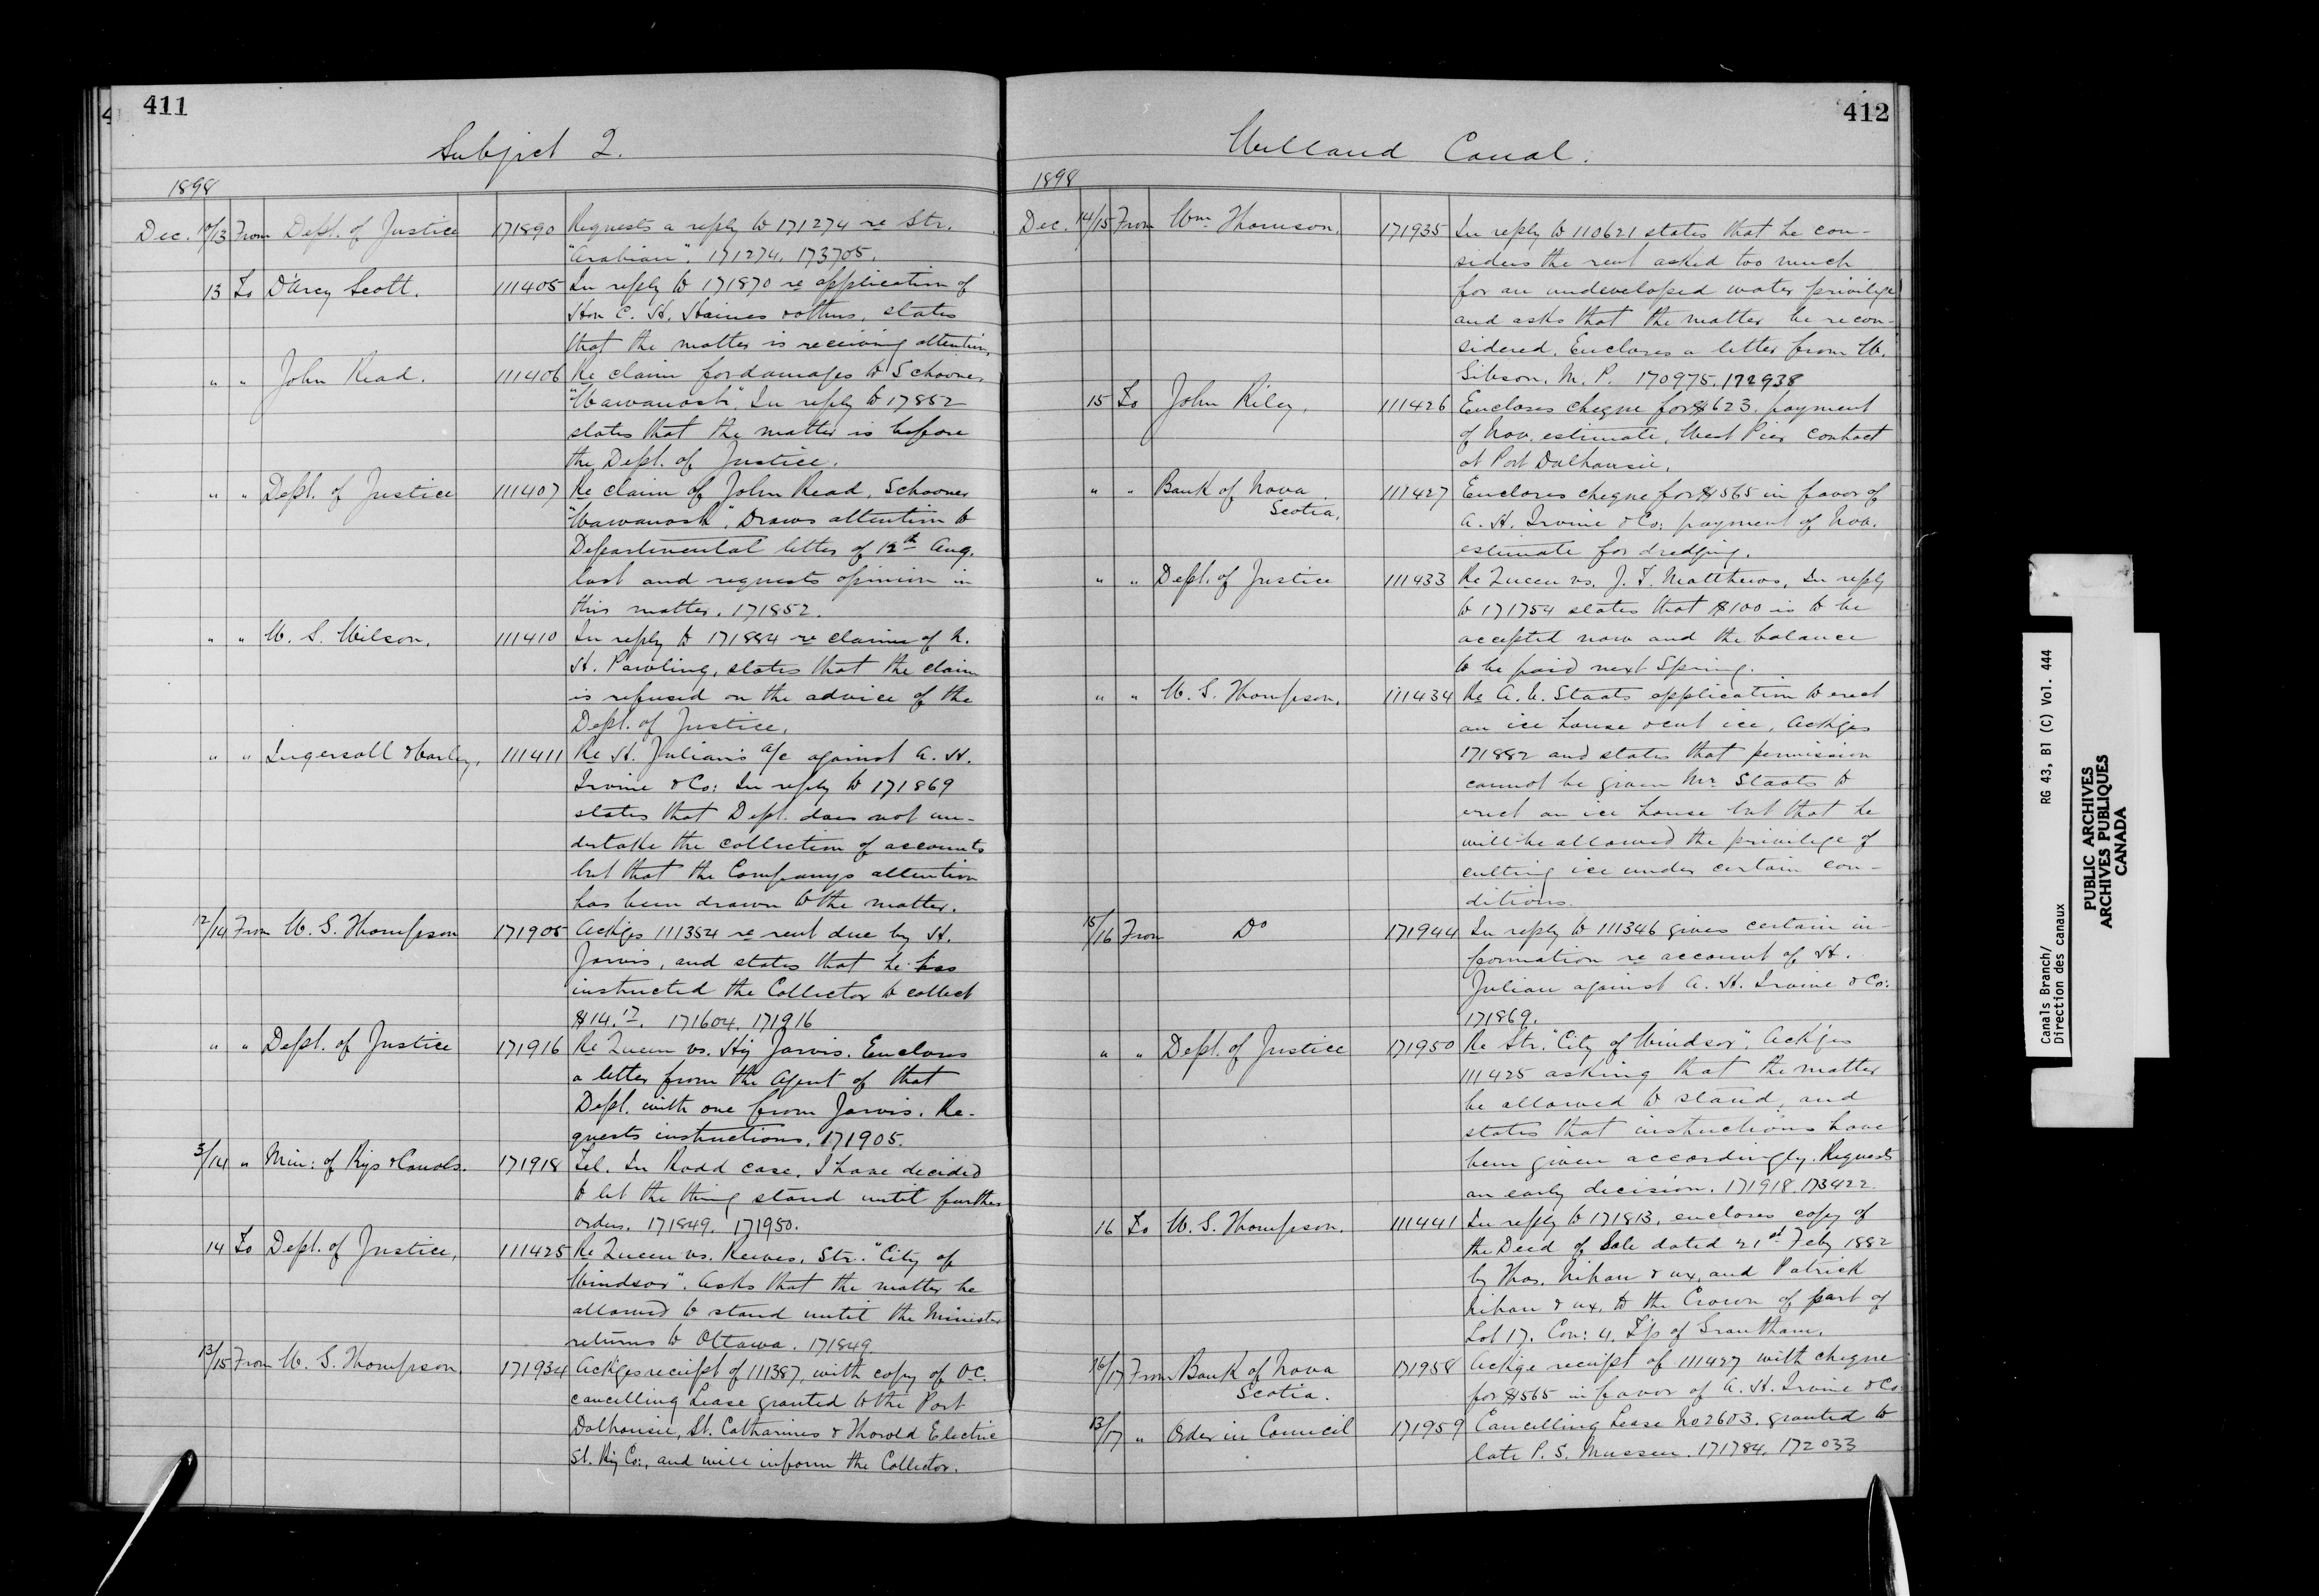 411
Subject 2.
1898
Dec. 10/13 From Dept. of Justice 171890 Requests a reply to 171274 re Str.
"Arabian". 171274. 173705.
13 To D'Arcy Scott. 111405 In reply to 171870 re application of
Hon C. H. Haines & others, states
that the matter is receiving attention.
" " John Read. 111406 Re claim for damages to Schooner
"Wawanosh". In reply to 17852
states that the matter is before
the Dept. of Justice.
" " Dept. of Justice 111407 Re claim of John Read, Schooner
"Wawanosh". Draws attention to
Departmental letter of 12th Aug.
last and requests opinion in
this matter. 171852.
" " W. S. Wilson. 111410 In reply to 171884 re claim of N.
H. Pawling, states that the claim
is refused on the advice of the
Dept. of Justice.
" " Ingersoll & 111411 Re H. Julian's a/c against A. H.
Irvine & Co: In reply to 171869
states that Dept. does not un-
dertake the collection of accounts
but that the Companys attention
has been drawn to the matter.
12/14 From W. S. Thompson 171905 Ackges 111354 re rent due by H.
Jarvis, and states that he has
instructed the Collector to collect
$14.17. 171604. 171916
" " Dept. of Justice 171916 Re Queen vs. Hy Jarvis. Encloses
a letter from the Agent of that
Dept. with one from Jarvis. Re-
quests instructions. 171905.
3/14 " Min: of Rys & Canals. 171918 Tel. In Rodd case. I have decided
to let the thing stand until further
orders. 171849. 171950.
14 To Dept. of Justice, 111425 Re Queen vs. Reeves. Str. "City of
Windsor". Asks that the matter be
allowed to stand until the Minister
returns to Ottawa. 171849
13/15 From W. S. Thompson. 171934 Ackges receipt of 111387, with copy of O.C.
cancelling Lease granted to the Port
Dalhousie, St. Catharines & Thorold Electric
St. Ry Co:, and will inform the Collector.
412
Welland Canal.
1898
Dec. 14/15 From Wm. Thomson. 171935 In reply to 110621 states that he con-
siders the rent asked too much
for an undeveloped water privilege
and asks that the matter be recon-
sidered. Encloses a letter from W.
Gibson. M. P. 170975. 172938
15 To John Riley, 111426 Encloses cheque for $623. payment
of Nov. estimate, West Pier contract
at Port Dalhousie.
" " Bank of Nova
Scotia, 111427 Encloses cheque for $565 in favor of
A. H. Irvine & Co: payment of Nov.
estimate for dredging.
" " Dept. of Justice 111433 Re Queen vs. J. F. Matthews, In reply
to 171754 states that $100 is to be
accepted now and the balance
to be paid next Spring.
" " W. S. Thompson. 111434 Re A. W. Staats application to erect
an ice house & cut ice, Ackges
171882 and states that permission
cannot be given Mr. Staats to
erect an ice house but that he
will be allowed the privilege of
cutting ice under certain con-
ditions.
15/16 From Do 171944 In reply to 111346 gives certain in-
formation re account of H.
Julian against A. H. Irvine & Co:
171869.
" " Dept. of Justice 171950 Re Str. "City of Windsor". Ackges
111425 asking that the matter
be allowed to stand, and
states that instructions have
been given accordingly. Requests
an early decision. 171918. 173422.
16 To W. S. Thompson. 111441 In reply to 171813, encloses copy of
the Deed of Sale dated 21st Feby 1882
by Thos. Nihan & ux, and Patrick
Nihan & ux, to the Crown of part of
Lot 17. Con: 4. T'p of Grantham.
16/17 From Bank of Nova
Scotia. 171958 Ackge receipt of 111427 with cheque
for $565 in favor of A. H. Irvine & Co.
13/17 " Order in Council 171959 Cancelling Lease No 2603. granted to
late P. S. Mussen. 171784. 172033
Canals Branch/ RG 43, B1 (C) Vol. 444
Direction des canaux
PUBLIC ARCHIVES
ARCHIVES PUBLIQUES
CANADA